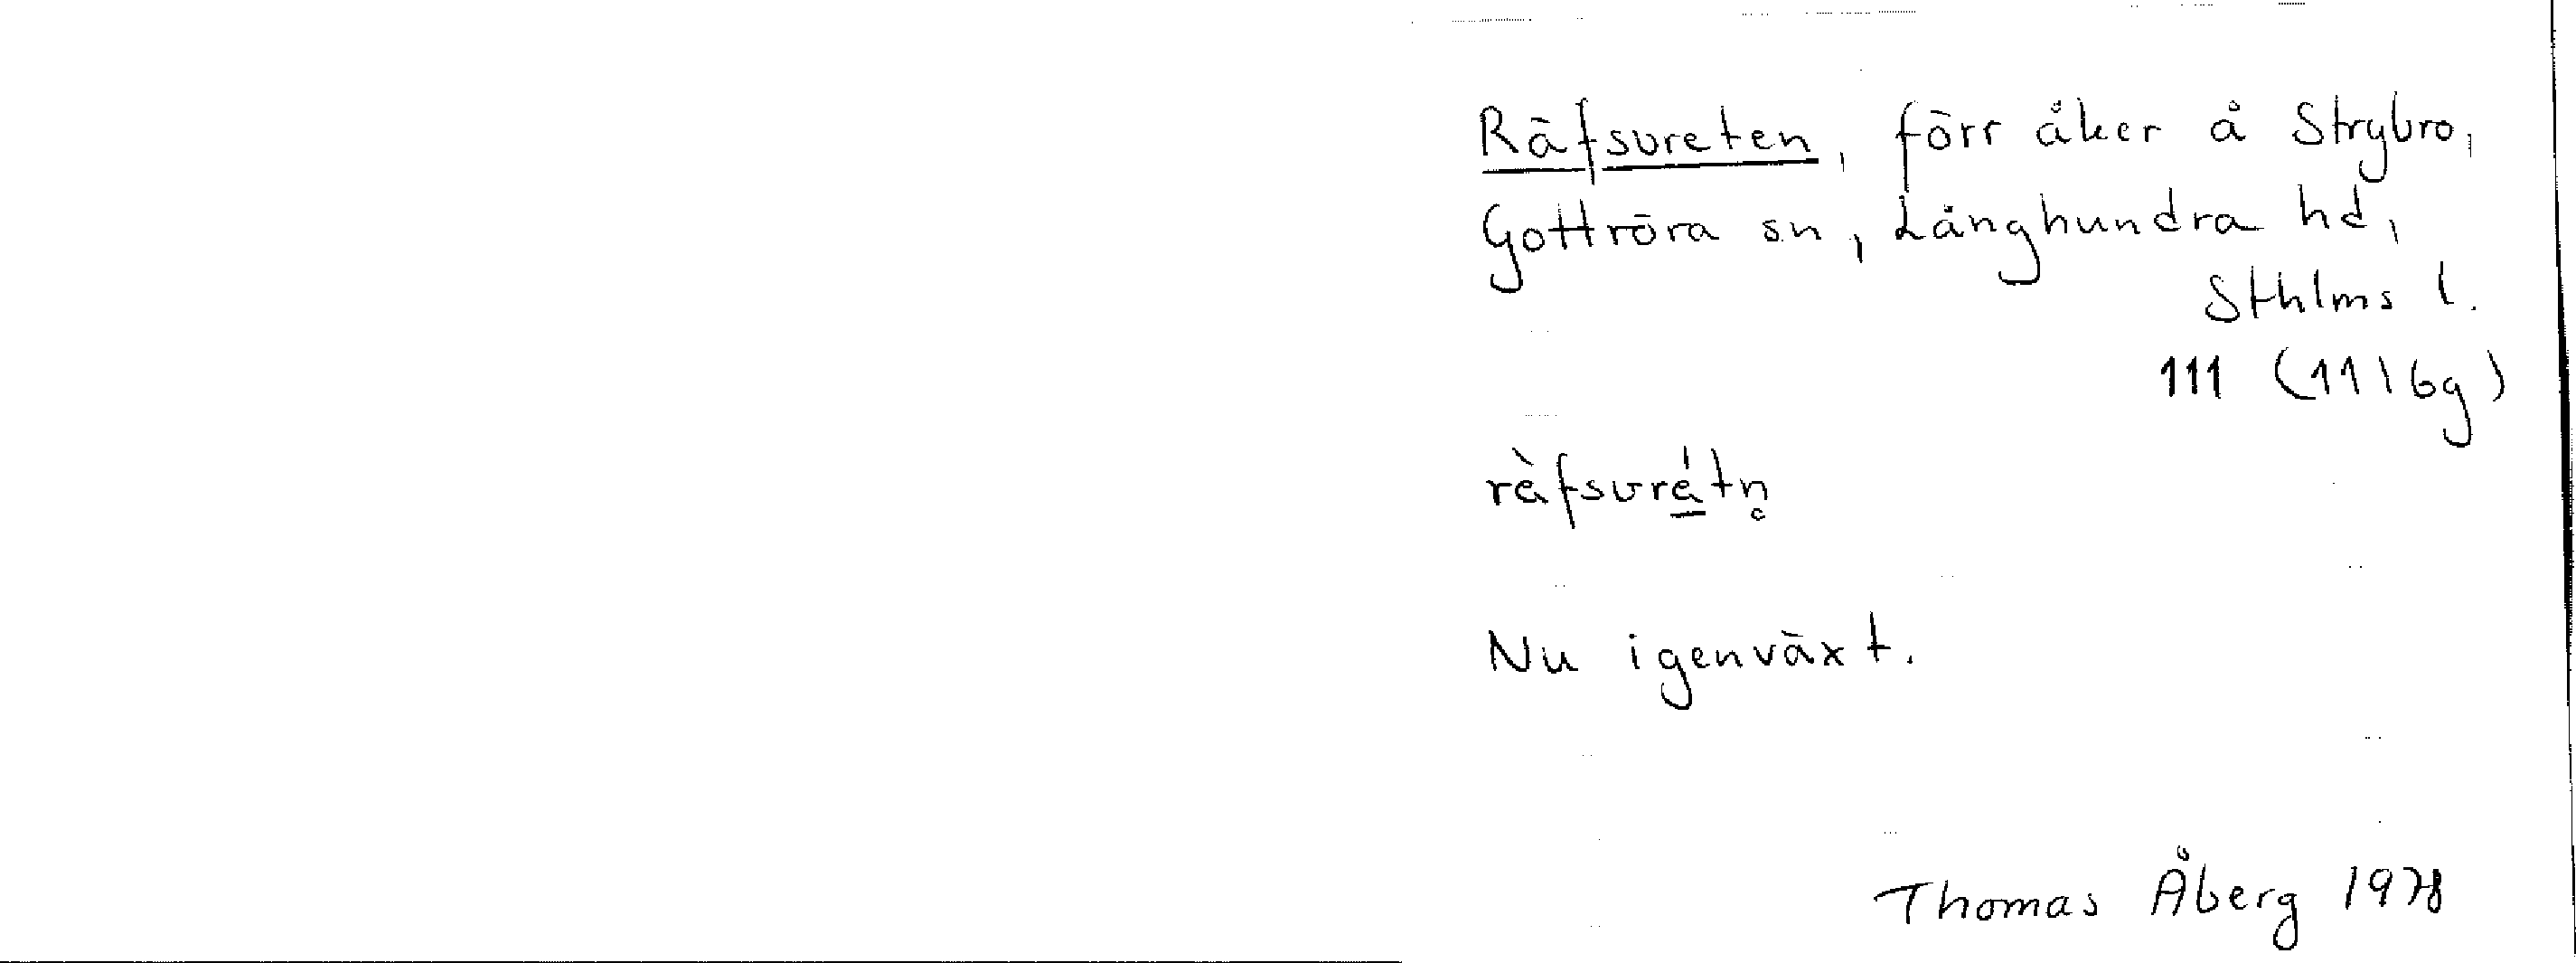 Räfsvreten, förr åker å Strybro,
Gottröra sn, Långhundra hd,
Sthlms l.
111 (11I6g)
rὲfsvrétn̥
Nu igenväxt.
Thomas Åberg 1978